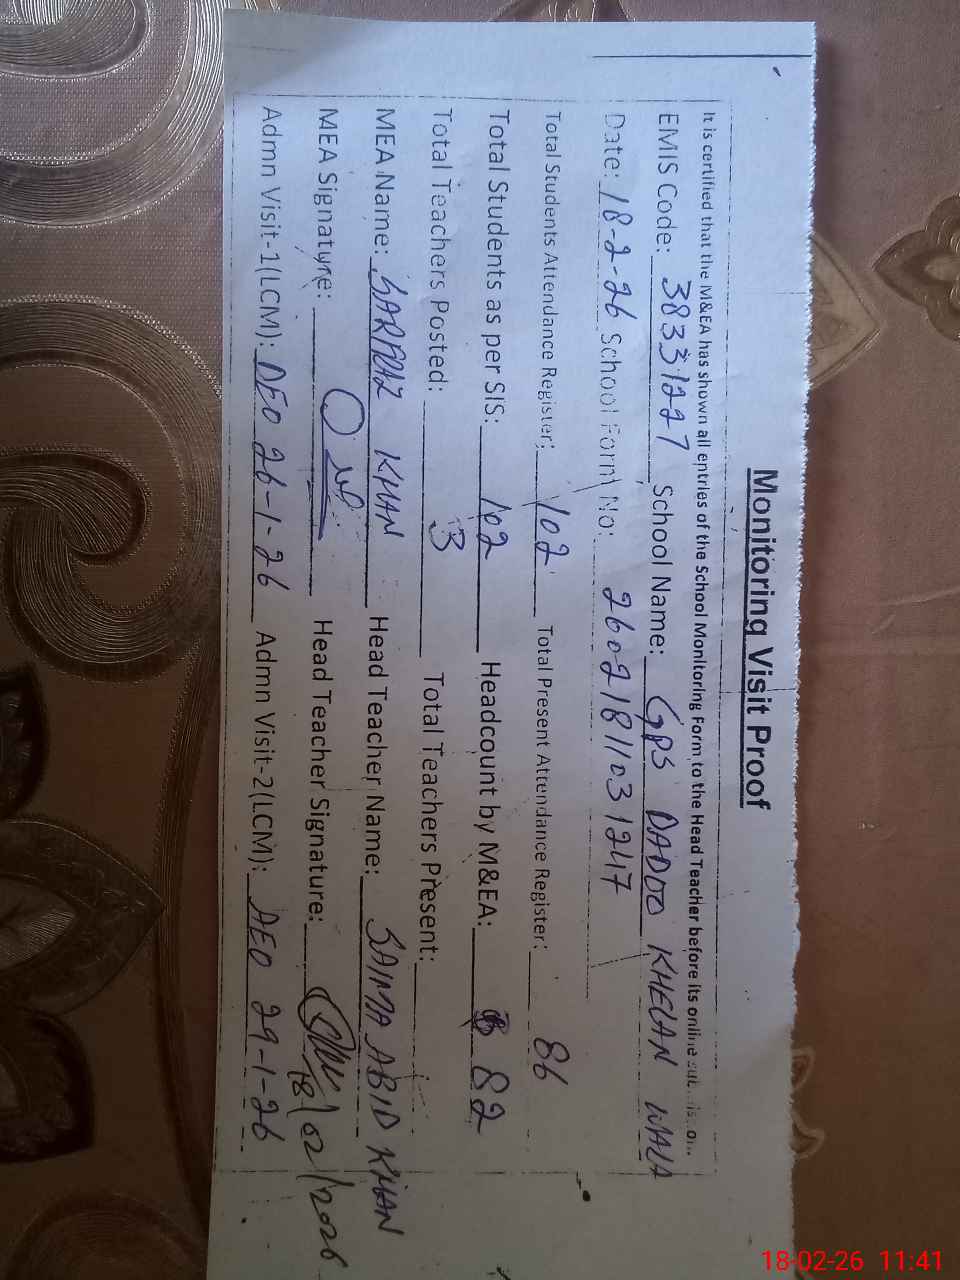 Monitoring Visit Proof
It is certified that the M&EA has shown all entries of the School Monitoring Form to the Head Teacher before its online
EMIS Code: 3833127 School Name: GPS DADOO KHELAN WALA
Date: 18-2-26 School Form No: 2602181103 1247
Total Students Attendance Register: 102 Total Present Attendance Register: 86
Total Students as per SIS: 102 Headcount by M&EA: 82
Total Teachers Posted: 3 Total Teachers Present:
MEA Name: SARFRAZ KHAN Head Teacher Name: SAIMA ABID KHAN
MEA Signature: Head Teacher Signature: 18/02/2026
Admn Visit-1(LCM): DEO 26-1-26 Admn Visit-2(LCM): AEO 29-1-26
18-02-26 11:41